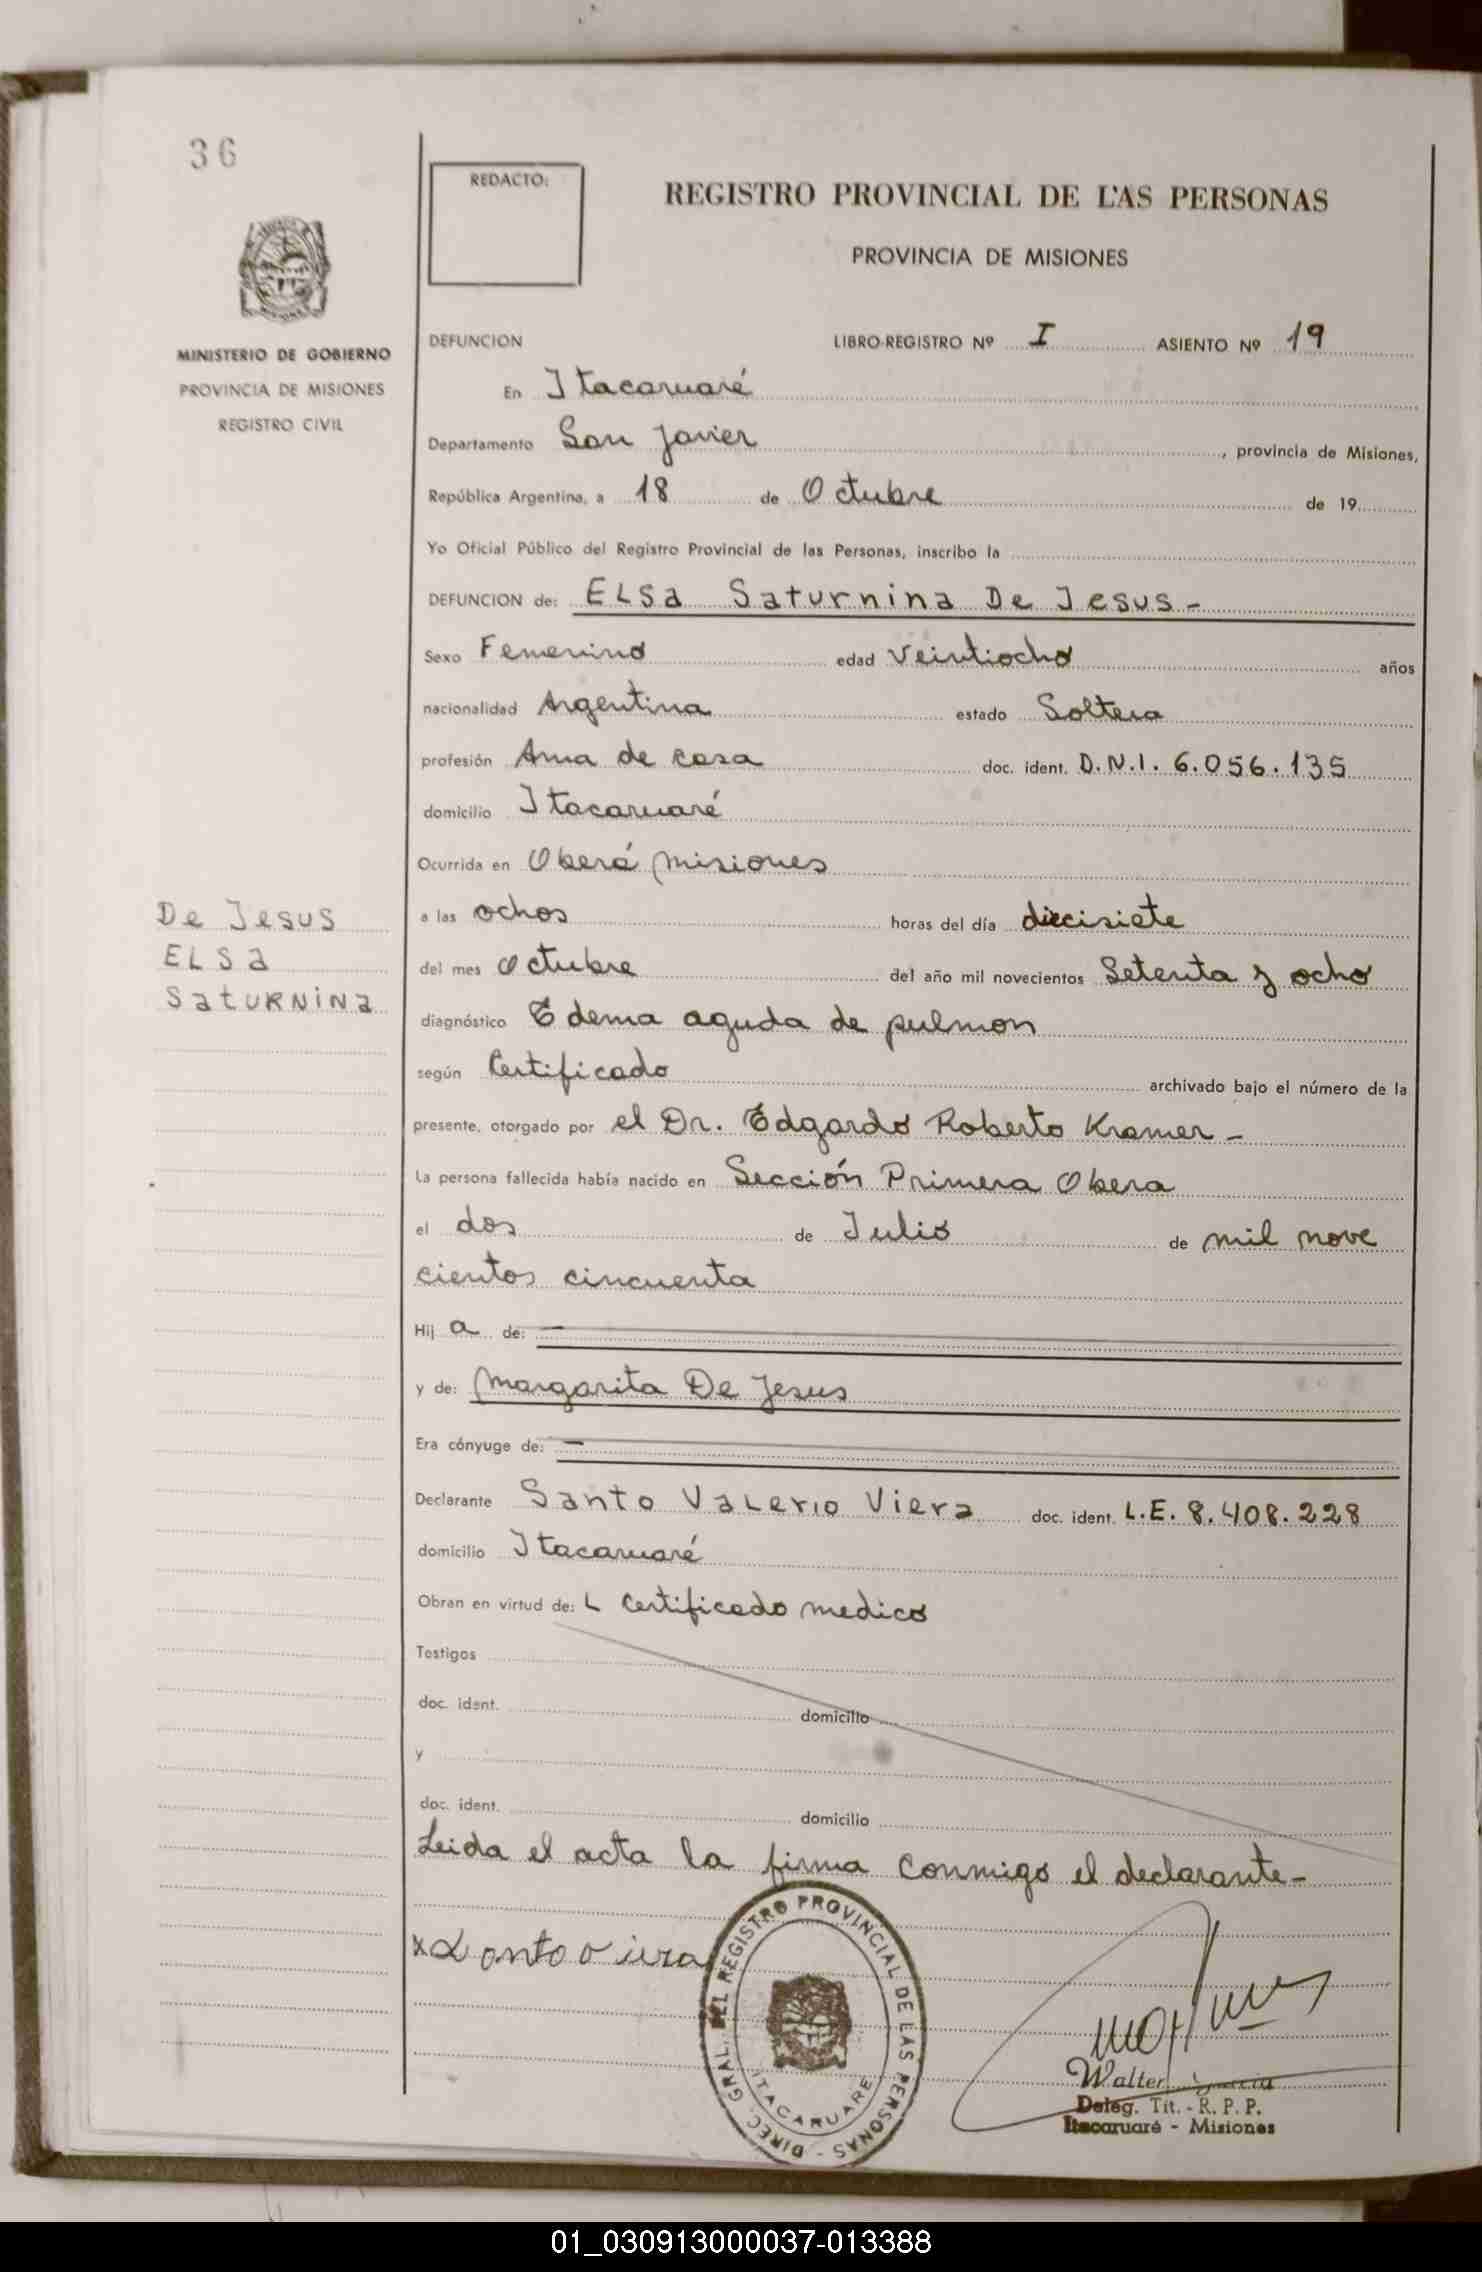 36
REDACTO:
REGISTRO PROVINCIAL DE LAS PERSONAS
PROVINCIA DE MISIONES
MINISTERIO DE GOBIERNO
PROVINCIA DE MISIONES
REGISTRO CIVIL
DEFUNCION LIBRO-REGISTRO Nº I ASIENTO Nº 19
En Itacaruaré
Departamento San Javier, provincia de Misiones,
República Argentina, a 18 de Octubre de 19
Yo Oficial Público del Registro Provincial de las Personas, inscribo la
DEFUNCION de: ELSa Saturnina De Jesus-
Sexo Femenino edad Veintiocho años
nacionalidad Argentina estado Soltera
profesión Ama de casa doc. ident. D.N.I. 6.056.135
domicilio Itacaruaré
Ocurrida en Oberá misiones
De Jesus
ELSa
SaturNiNa
a las ochos horas del día diecisiete
del mes Octubre del año mil novecientos Setenta y ocho
diagnóstico Edema aguda de pulmon
según Certificado archivado bajo el número de la
presente, otorgado por el Dr. Edgardo Roberto Kramer-
La persona fallecida había nacido en Sección Primera Obera
el dos de Julio de mil nove
cientos cincuenta
Hij a de: —
y de: Margarita De Jesus
Era cónyuge de: —
Declarante Santo Valerio Viera doc. ident. L.E. 8.408.228
domicilio Itacaruaré
Obran en virtud de: L Certificado medico
Testigos
doc. ident. domicilio
y
doc. ident. domicilio
Leida el acta la firma conmigo el declarante-
x Santo Viera
DIREC. GRAL. DEL REGISTRO PROVINCIAL DE LAS PERSONAS -
ITACARUARE
Walter
Deleg. Tit. - R. P. P.
Itacaruaré - Misiones
01_030913000037-013388